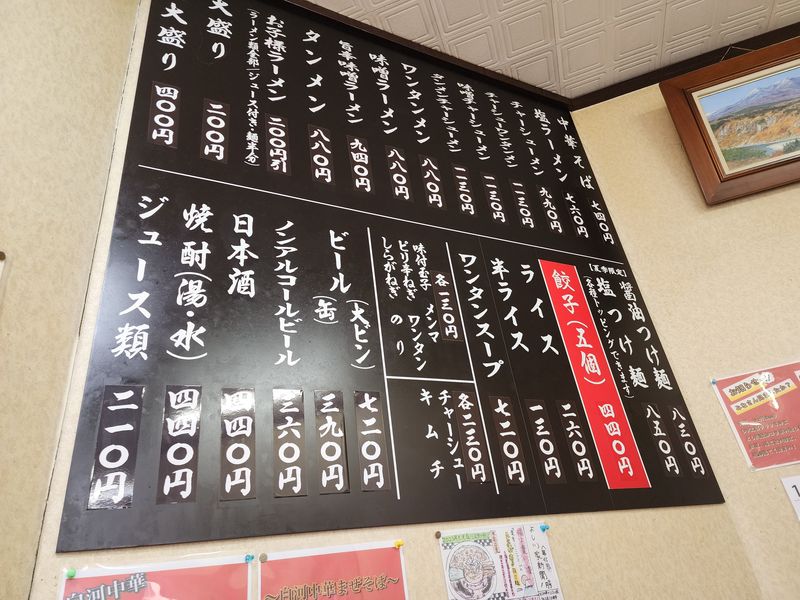 中華そば 七四〇円
塩ラーメン 七六〇円
チャーシューメン 九九〇円
チャーシューワンタンメン 一一三〇円
味噌チャーシューメン 一一三〇円
タンメンチャーシューメン 一一三〇円
ワンタンメン 八八〇円
味噌ラーメン 八八〇円
旨辛味噌ラーメン 九四〇円
タンメン 八八〇円
お子様ラーメン 二〇〇円引
(ラーメン類全部)(ジュース付き・麺半分)
大盛り 二〇〇円
大盛り 四〇〇円
【夏季限定】
醤油つけ麺 八三〇円
塩つけ麺 八五〇円
(各種トッピングできます)
餃子(五個) 四四〇円
ライス 二六〇円
半ライス 一三〇円
ワンタンスープ 七二〇円
味付玉子 メンマ
ピリ辛ねぎ ワンタン
しらがねぎ のり
各一三〇円
チャーシュー
キムチ
各二三〇円
ビール(大ビン) 七二〇円
(缶) 三九〇円
ノンアルコールビール 三六〇円
日本酒 四四〇円
焼酎(湯・水) 四四〇円
ジュース類 二一〇円
白河中華
〜白河中華まぜそば〜